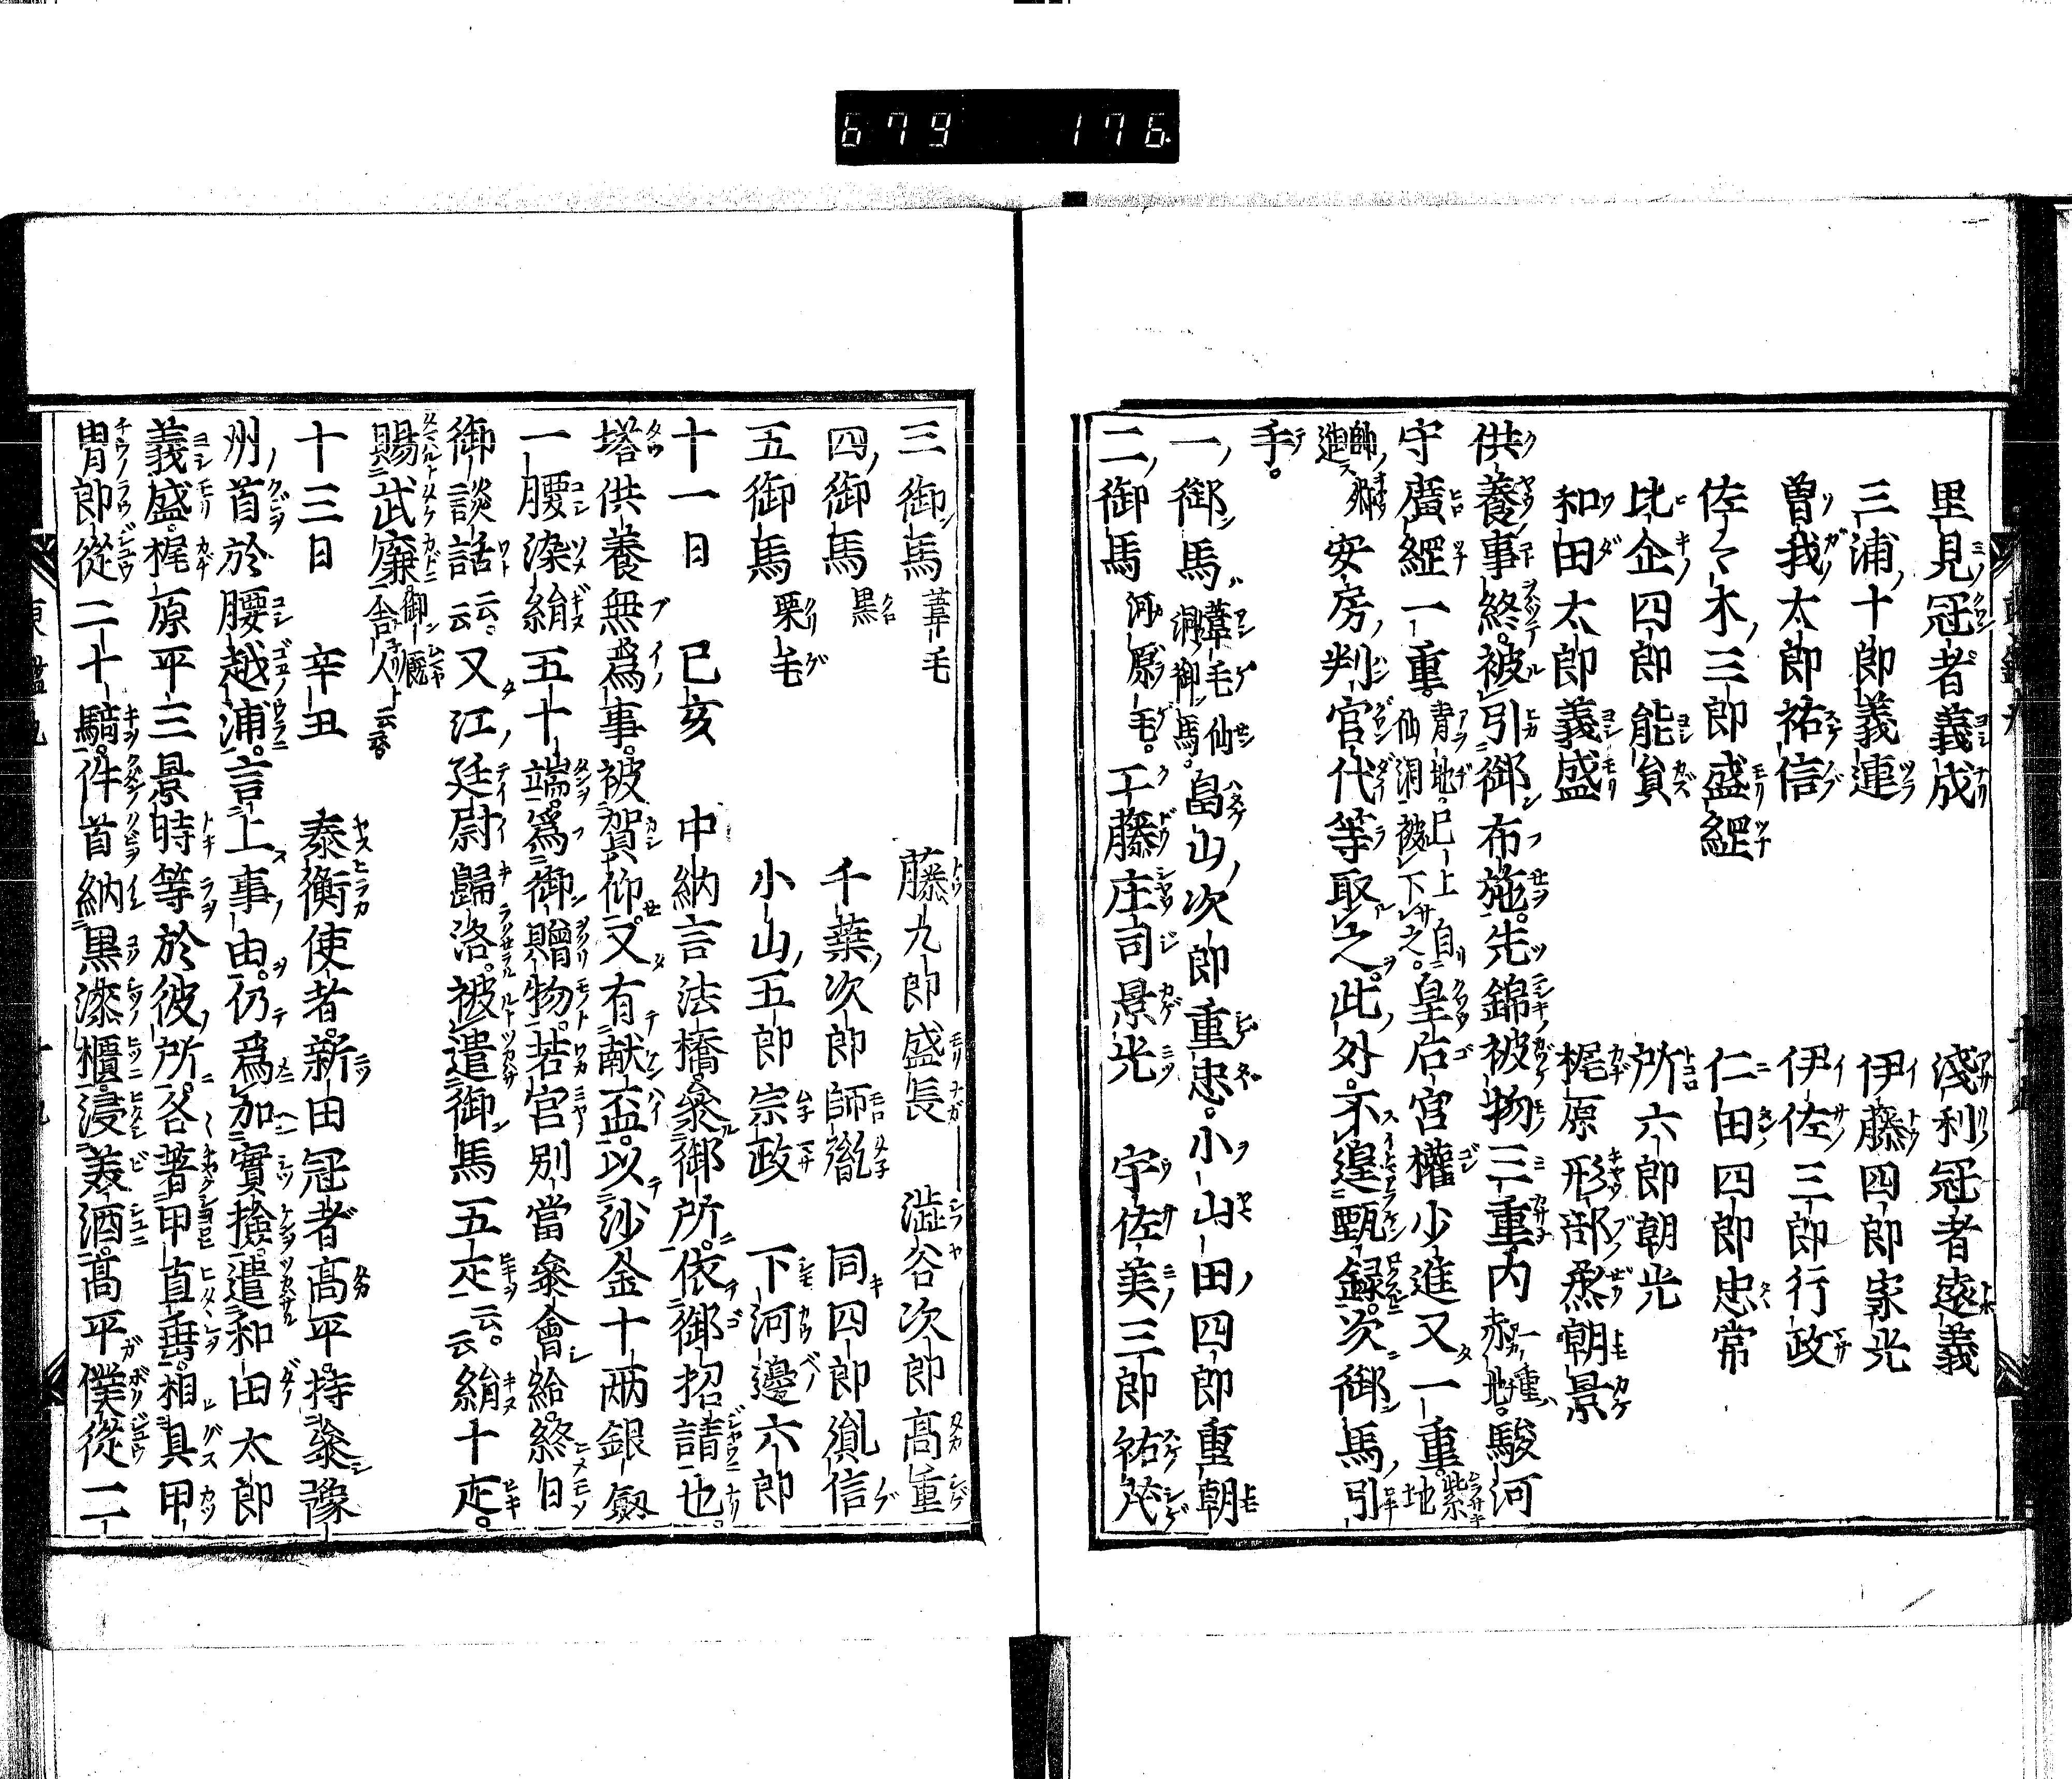 679 176
里見冠者義成 淺利冠者遠義
三浦十郎義連 伊藤四郎家光
曽我太郎祐信 伊佐三郎行政
佐々木三郎盛綱 仁田四郎忠常
比企四郎能員 所六郎朝光
和田太郎義盛 梶原形部烝朝景
供養事終被引御布施先錦被物三重内一重赤地駿河
守廣綱一重青地已上自仙洞被下之皇后宮權少進又一重紫地
帥進安房判官代等取之此外不遑甄録次御馬引
手
一御馬葦毛仙洞御馬畠山次郎重忠小山田四郎重朝
二御馬河原毛工藤庄司景光 宇佐美三郎祐茂
三御馬葦毛 藤九郎盛長 澁谷次郎高重
四御馬黒 千葉次郎師胤 同四郎胤信
五御馬栗毛 小山五郎宗政 下河邊六郎
十一日 己亥 中納言法橋參御所依御招請也
塔供養無爲事被賀仰又有献盃以沙金十兩銀劔
一腰染絹五十端爲御贈物若宮別當參會給終日
御談話云云又江廷尉歸洛被遣御馬五疋云云絹十疋
賜武廉御厩舎人云云
十三日 辛丑 泰衡使者新田冠者高平持參豫
州首於腰越浦言上事由仍爲加實撿遣和田太郎
義盛梶原平三景時等於彼所各著甲直垂相具甲
冑郎從二十騎件首納黒漆櫃浸美酒高平僕從二